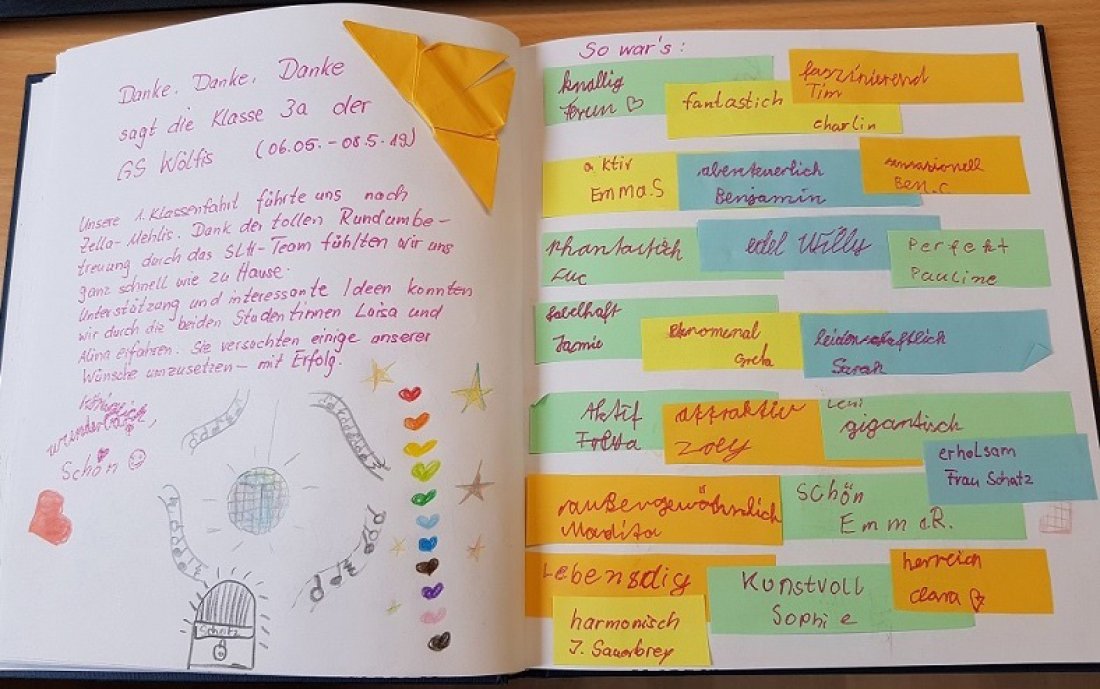 Danke, Danke, Danke
sagt die Klasse 3a der
GS Wölfis (06.05. - 08.5.19)
Unsere 1. Klassenfahrt führte uns nach
Zella-Mehlis. Dank der tollen Rundumbe-
treuung durch das SLH-Team fühlten wir uns
ganz schnell wie zu Hause.
Unterstützung und interessante Ideen konnten
wir durch die beiden Studentinnen Luisa und
Alina erfahren. Sie versuchten einige unserer
Wünsche umzusetzen - mit Erfolg.
wunderbar,
Schön
Schatz
So war's:
knallig
fantastich
charlin
faszinierend
Tim
aktiv
Emma.S
abenteuerlich
Benjamin
sensasionell
Ben.C
phantastich
Luc
edel Willy
Perfekt
Pauline
fabelhaft
Jasmie
fenomenal
Greta
leidenschaftlich
Sarah
Aktif
attraktiv
Zoey
Leni
gigantisch
erholsam
Frau Schatz
außergewöhnlich
Madita
SCHön
EmmaR.
Lebensdig
harmonisch
J. Sauerbrey
Kunstvoll
Sophie
herreich
clara